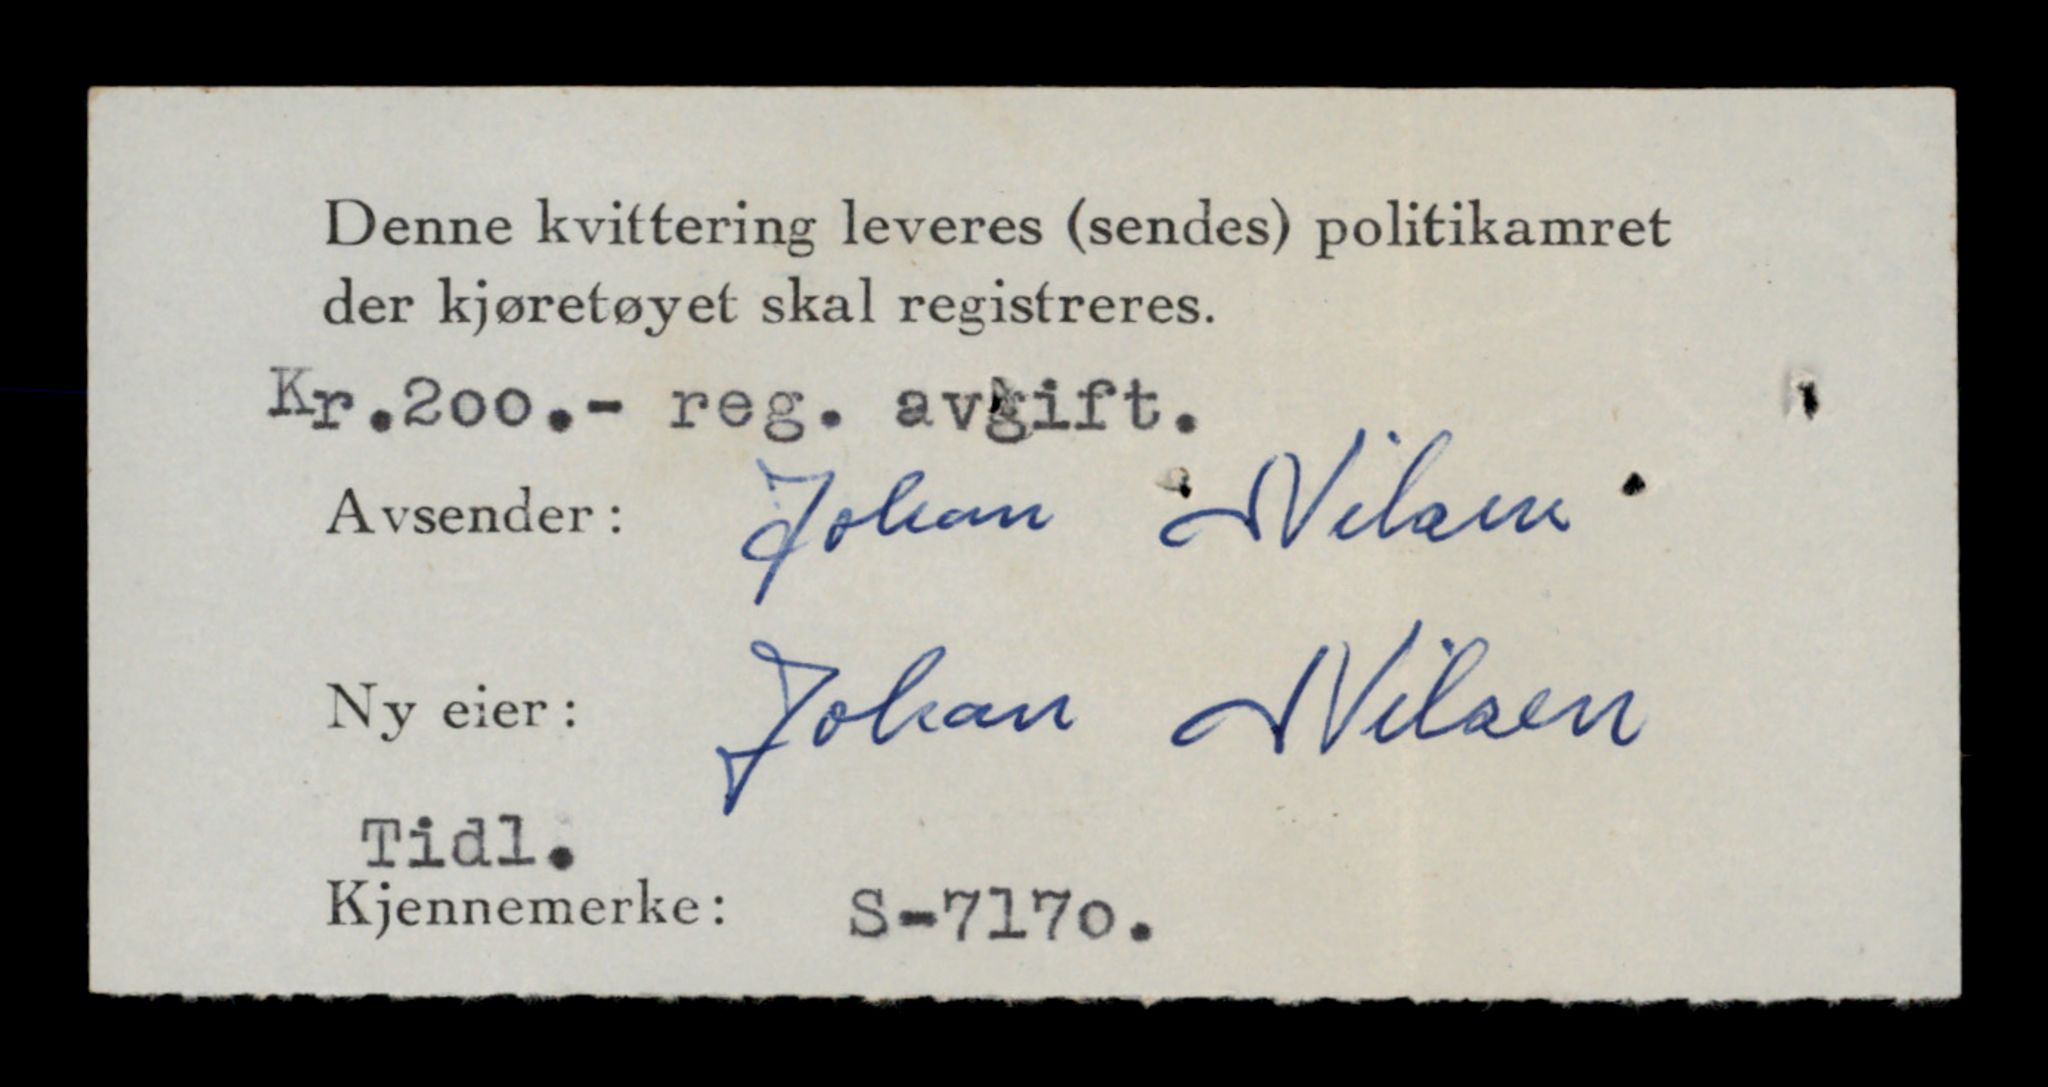 Denne kvittering leveres (sendes) politikamret
der kjøretøyet skal registreres.
Kr.200.- reg. avgift.
Avsender: Johan Nilsen
Ny eier: Johan Nilsen
Tidl.
Kjennemerke: S-7170.